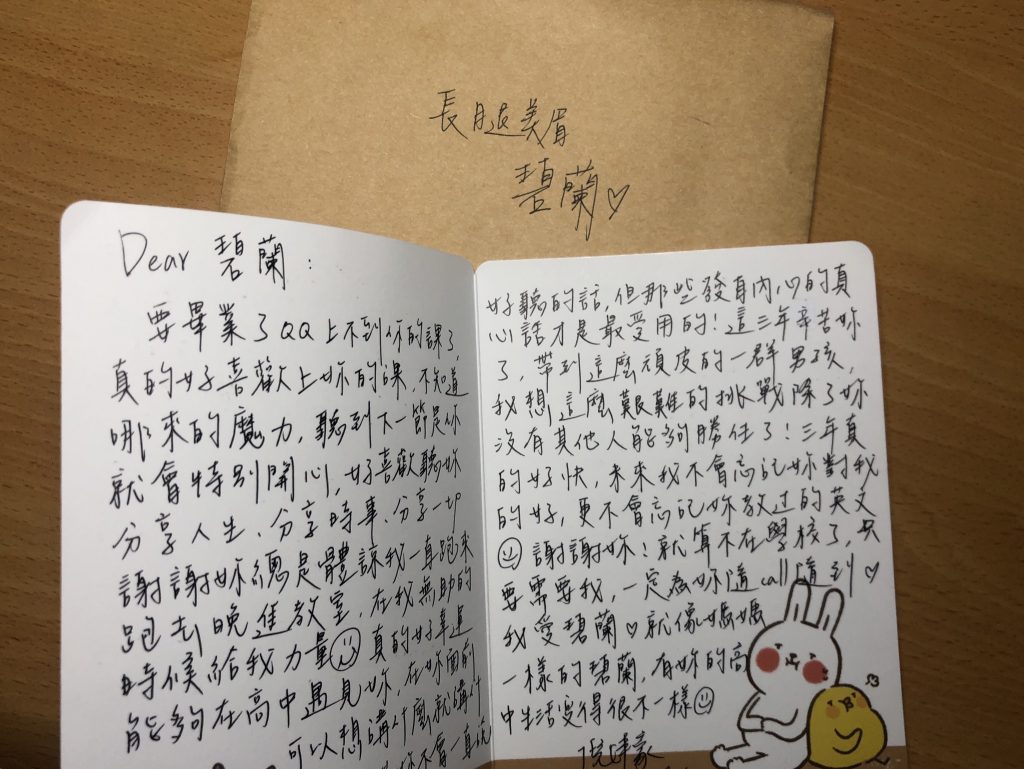 長腿美眉
碧蘭♡
Dear 碧蘭：
要畢業了QQ上不到妳的課了，
真的好喜歡上妳的課，不知道
哪來的魔力，聽到下一節是妳
就會特別開心，好喜歡聽妳
分享人生、分享時事、分享一切
謝謝妳總是體諒我一直跑來
跑去晚進教室，在我無助的
時候給我力量☺真的好幸運
能夠在高中遇見妳，在妳面前
可以想講什麼就講什
妳不會一直說
好聽的話，但那些發自內心的真
心話才是最受用的！這三年辛苦妳
了，帶到這麼頑皮的一群男孩，
我想這麼艱難的挑戰除了妳
沒有其他人能夠勝任了！三年真
的好快，未來我不會忘記妳對我
的好，更不會忘記妳教過的英文
☺謝謝妳！就算不在學校了，只
要需要我，一定為妳隨call隨到♡
我愛碧蘭♡就像媽媽
一樣的碧蘭，有妳的高
中生活變得很不一樣☺